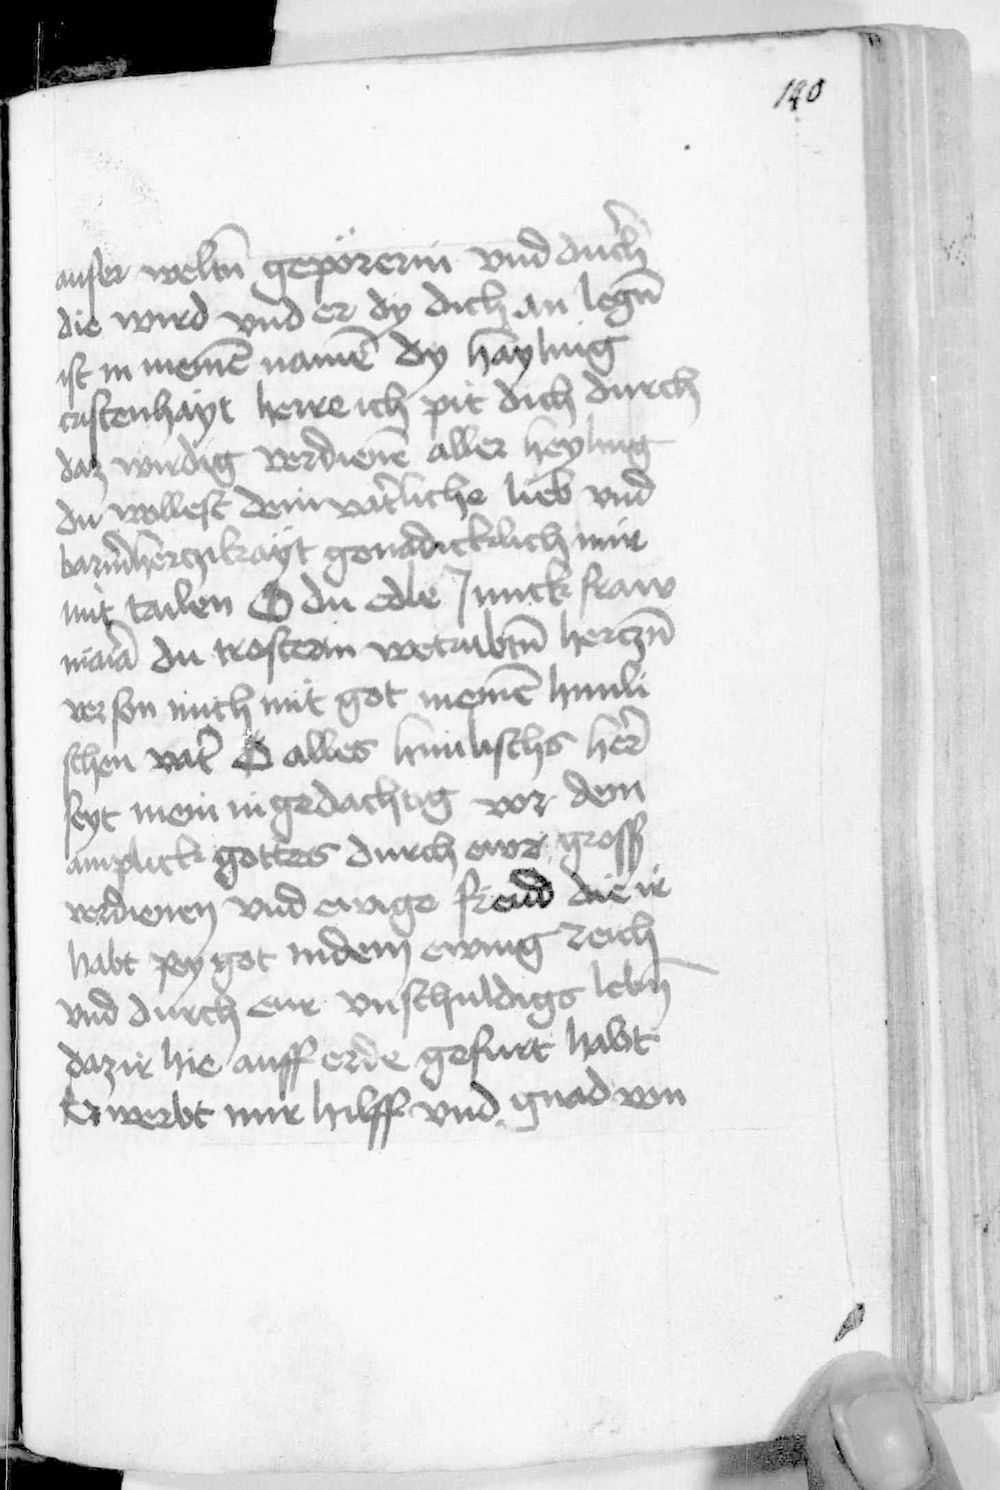 140
auser weltn̄ gepörerin vnd durch
die wird vnd er dy dich an legn̄
ist in meinē namē dy hayling
cristenhayt herre ich pit dich durch
daz wirdig verdienē aller heyling
du wollest dein vat̓liche lieb vnd
barmherczikayt genädicklich mir
mit tailen O du edle Junckfraw
maria du trosterin wetrubtn̄ herczn̄
verson mich mit got meinē himli
schen vat̓ O alles himlischs her̓
seyt mein in gedachtig vor dem
amplick gottes durch ewr gross
verdienen vnd ewige freud die ir
habt pey got in dem ewing reich
vnd durch eur vnschuldigs lebn̄
daz ir hie auff erde gefurt habt
Erwerbt mir hilff vnd gnad von